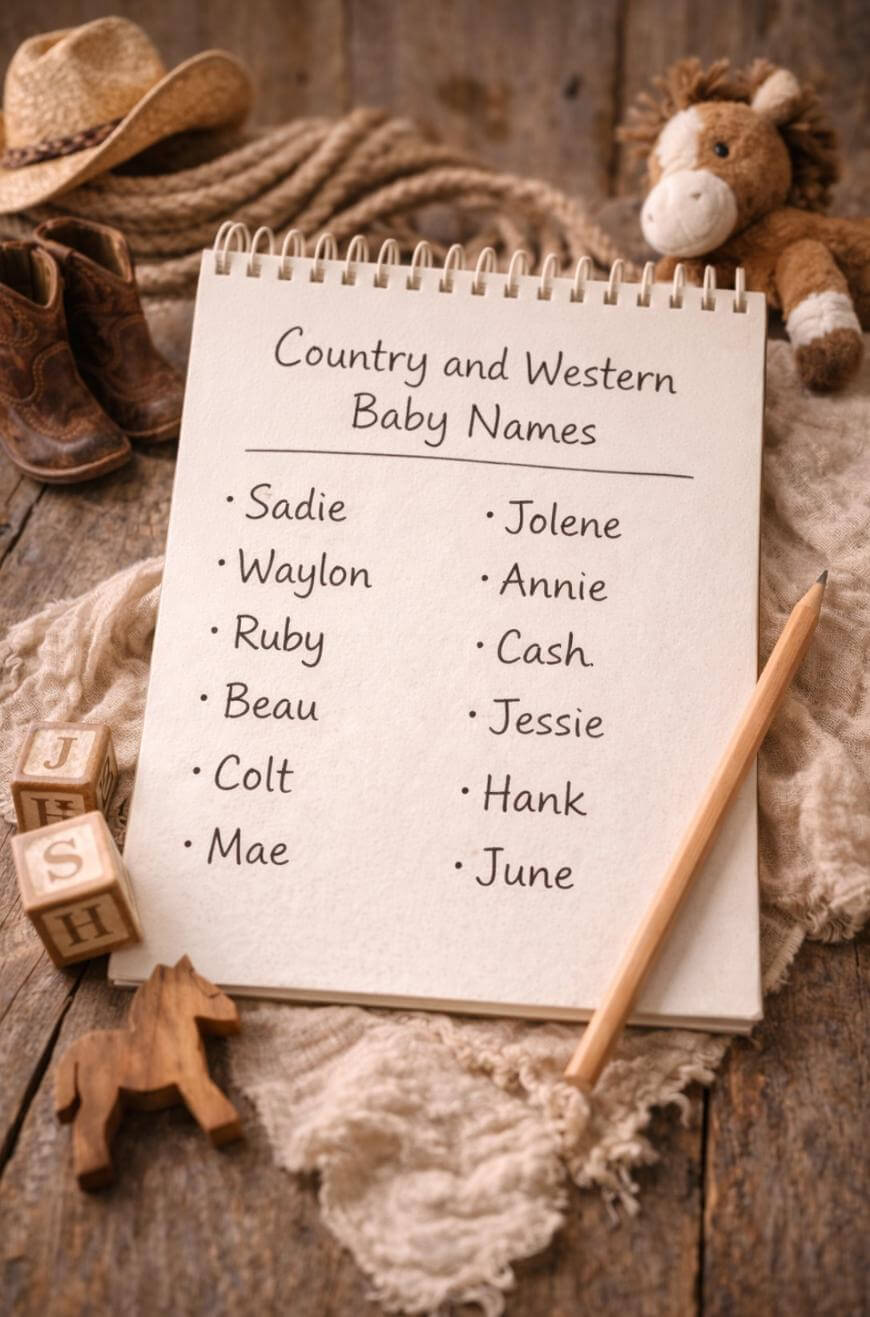 Country and Western
Baby Names
• Sadie
• Waylon
• Ruby
• Beau
• Colt
• Mae
• Jolene
• Annie
• Cash.
• Jessie
• Hank
• June
J
H
S
H